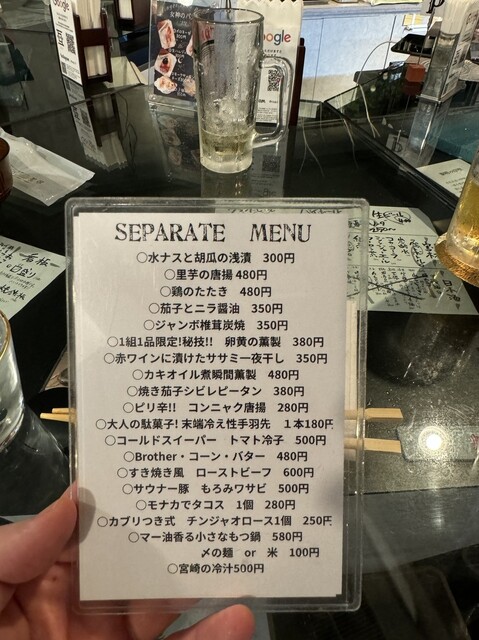 Google
SEPARATE MENU
〇水ナスと胡瓜の浅漬 300円
〇里芋の唐揚480円
〇鶏のたたき 480円
〇茄子とニラ醤油 350円
〇ジャンボ椎茸炭焼 350円
〇1組1品限定!秘技!! 卵黄の薫製 380円
〇赤ワインに漬けたササミ一夜干し 350円
〇カキオイル煮瞬間薫製 480円
〇焼き茄子シビレピータン 380円
〇ピリ辛!! コンニャク唐揚 280円
〇大人の駄菓子!末端冷え性手羽先 1本180円
〇コールドスイーパー トマト冷子 500円
〇Brother・コーン・バター 480円
〇すき焼き風 ローストビーフ 600円
〇サウナー豚 もろみワサビ 500円
〇モナカでタコス 1個 280円
〇カブリつき式 チンジャオロース1個 250円
〇マー油香る小さなもつ鍋 580円
〆の麺 or 米 100円
〇宮崎の冷汁500円